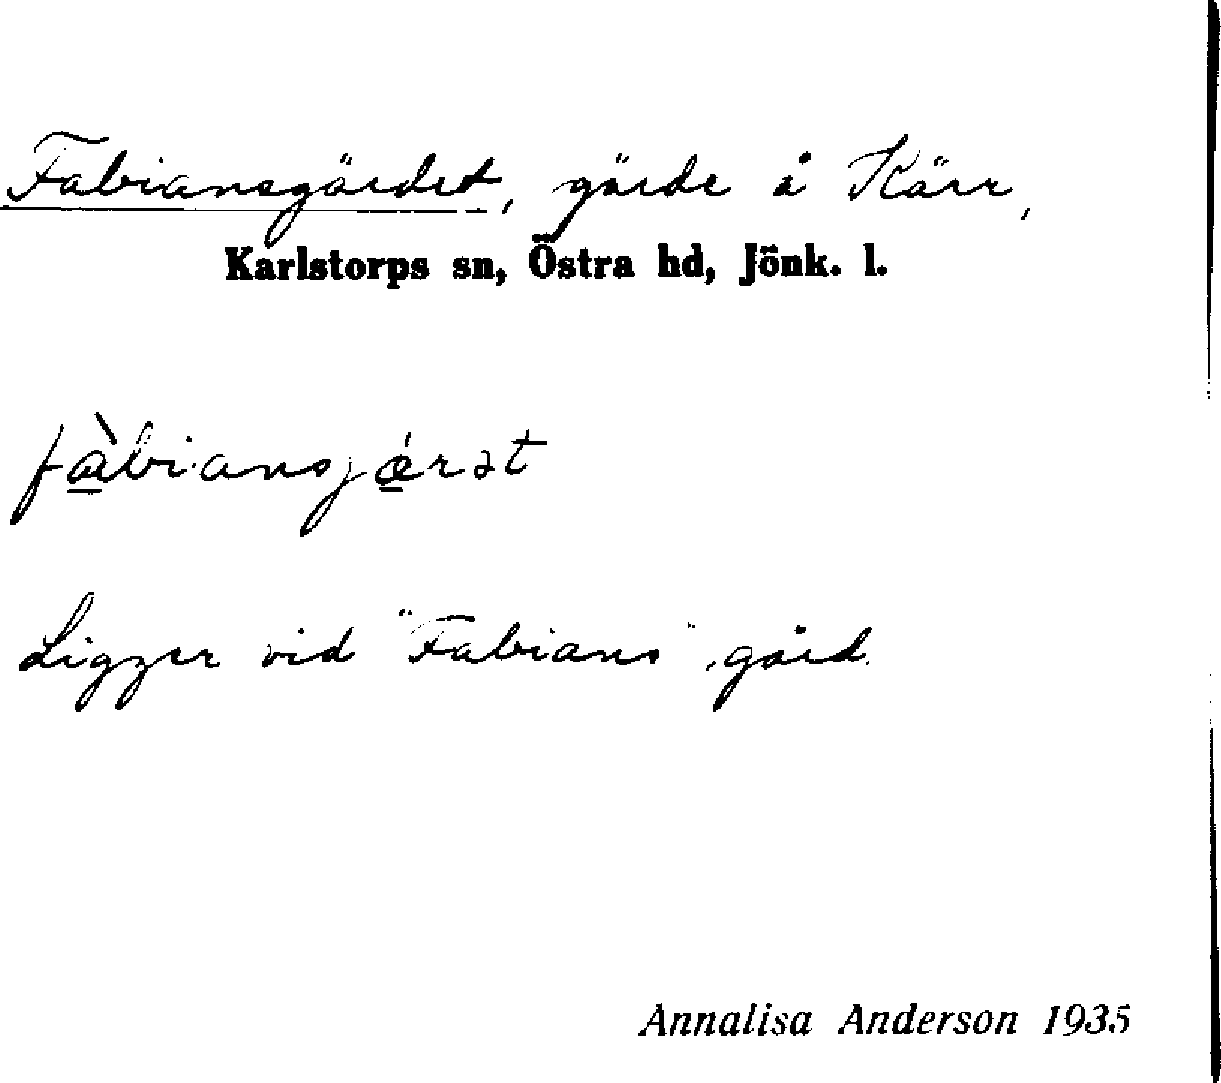 Fabiansgärdet, gärde å Kärr,
Karlstorps sn, Östra hd, Jönk. l.
fàbiansjǽrət
Ligger vid "Fabians" gård.
Annalisa Anderson 1935